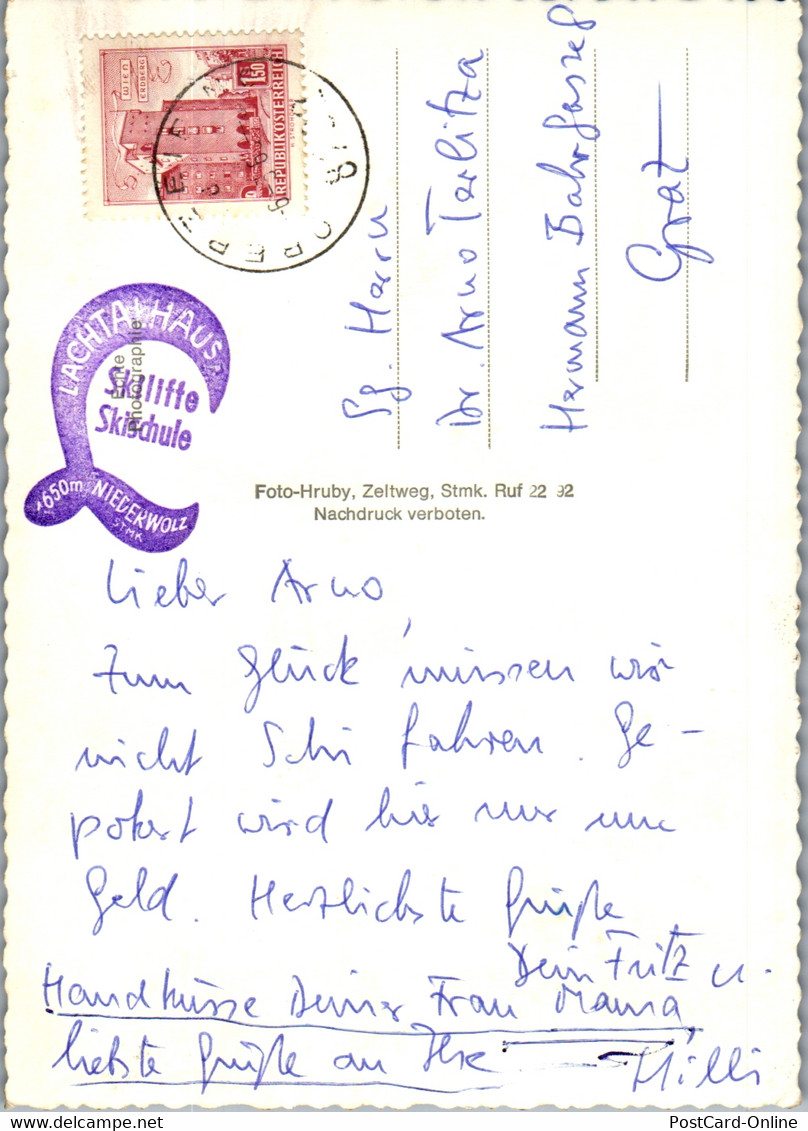 WIEN
ERDBERG
1.50
REPUBLIK ÖSTERREICH
LACHTALHAUS
Echte
Photographie
Skilifte
Skischule
1650m NIEDERWÖLZ
STMK
Sg. Herrn
Dr. Arno Terlitza
Hermann Bahrgasse 8
Graz
Foto-Hruby, Zeltweg, Stmk. Ruf 22 92
Nachdruck verboten.
Lieber Arno,
Zum Glück müssen wir
nicht Schi fahren. Ge-
pokert wird hier nur um
Geld. Herzlichste Grüße
Dein Fritz u.
Handküsse Deiner Frau Mama,
liebste Grüße an Ilse
Milli
PostCard-Online